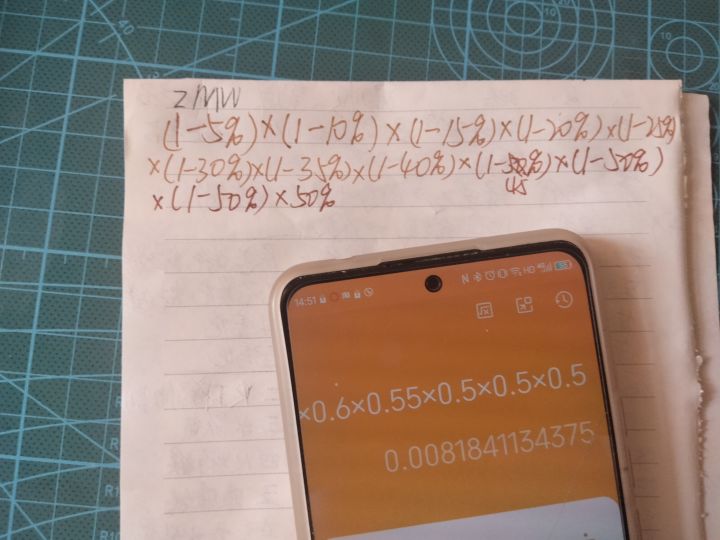 ZMW
(1-5%)×(1-10%)×(1-15%)×(1-20%)×(1-25%)
×(1-30%)×(1-35%)×(1-40%)×(1-50%)×(1-50%)
45
×(1-50%)×50%
14:51
N HD
×0.6×0.55×0.5×0.5×0.5
0.0081841134375
40
10
10